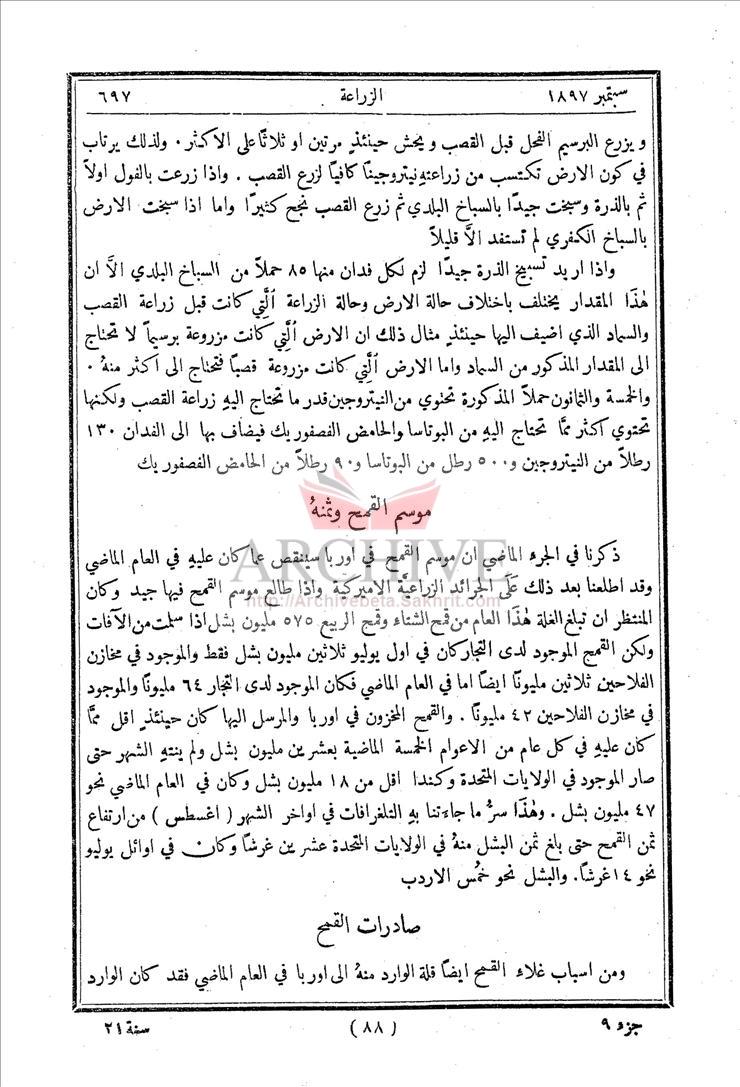 سبتمبر ١٨٩٧ الزراعة ٦٩٧
ويزرع البرسيم الفحل قبل القصب ويحش حينئذٍ مرتين او ثلاثًا على الاكثر . ولذلك يرتاب
في كون الارض تكتسب من زراعتهِ نيتروجينًا كافيًا لزرع القصب . واذا زرعت بالفول اولاً
ثم بالذرة وسبخت جيدًا بالسباخ البلدي ثم زرع القصب نجح كثيرًا واما اذا سبخت الارض
بالسباخ الكفري لم تستفد الاَّ قليلاً
واذا اريد تسبيخ الذرة جيدًا لزم لكل فدان منها ٨٥ حملاً من السباخ البلدي الاَّ ان
هٰذَا المقدار يختلف باختلاف حالة الارض وحالة الزراعة اَلَّتِي كانت قبل زراعة القصب
والسماد الذي اضيف اليها حينئذٍ مثال ذلك ان الارض اَلَّتِي كانت مزروعة برسيماً لا تحتاج
الى المقدار المذكور من السماد واما الارض اَلَّتِي كانت مزروعة قصبًا فتحتاج الى اكثر منهُ .
والخمسة والثمانون حملاً المذكورة تحتوي من النيتروجين قدر ما تحتاج اليهِ زراعة القصب ولكنها
تحتوي اكثر ممَّا تحتاج اليهِ من البوتاسا والحامض الفصفوريك فيضاف بها الى الفدان ١٣٠
رطلاً من النيتروجين و٥٠٠ رطل من البوتاسا و٩٠ رطلاً من الحامض الفصفوريك
موسم القمح وثمنهُ
ذكرنا في الجزء الماضي ان موسم القمح في اوربا سينقص عما كان عليهِ في العام الماضي
وقد اطلعنا بعد ذلك عَلَى الجرائد الزراعيَّة الاميركية واذا طالع موسم القمح فيها جيد وكان
المنتظر ان تبلغ الغلة هٰذَا العام من قمح الشتاء وقمح الربيع ٥٧٥ مليون بشل اذا سلمت من الآفات
ولكن القمح الموجود لدى التجار كان في اول يوليو ثلاثين مليون بشل فقط والموجود في مخازن
الفلاحين ثلاثين مليونًا ايضًا اما في العام الماضي فكان الموجود لدى التجار ٦٤ مليونًا والموجود
في مخازن الفلاحين ٤٢ مليونًا . والقمح المخزون في اوربا والمرسل اليها كان حينئذٍ اقل ممَّا
كان عليهِ في كل عام من الاعوام الخمسة الماضية بعشرين مليون بشل ولم ينتهِ الشهر حتى
صار الموجود في الولايات المتحدة وكندا اقل من ١٨ مليون بشل وكان في العام الماضي نحو
٤٧ مليون بشل . وهٰذَا سرُّ ما جاءتنا بهِ التلغرافات في اواخر الشهر ( اغسطس ) من ارتفاع
ثمن القمح حتى بلغ ثمن البشل منهُ في الولايات المتحدة عشرين غرشًا وكان في اوائل يوليو
نحو ١٤ غرشًا. والبشل نحو خُمس الاردب
صادرات القمح
ومن اسباب غلاء القمح ايضًا قلة الوارد منهُ الى اوربا في العام الماضي فقد كان الوارد
جزء ٩ (٨٨) سنة ٢١
ARCHIVE
http://Archivebeta.Sakhrit.com